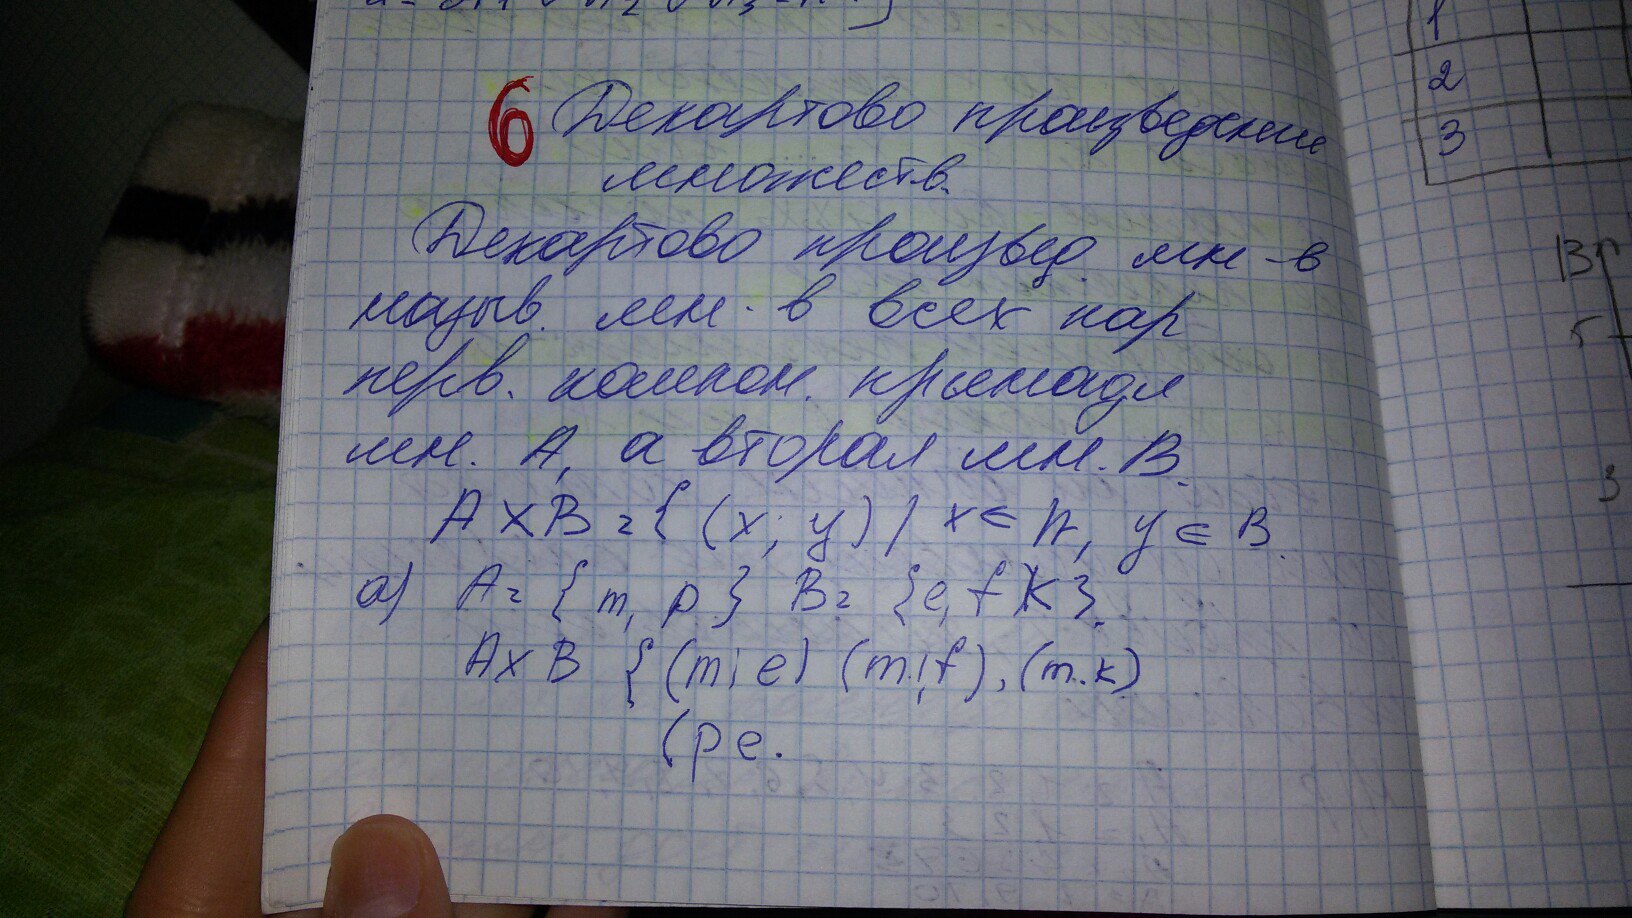 6 Декартово произведение
множеств.
Декартово произвед. мн-в
назыв. мн-в всех пар
перв. компон. принадл
мн. A, а вторая мн. B.
A X B = { (x; y) / x ∈ A, y ∈ B.
а) A = { m, p } B = { e, f K }.
A x B { (m; e) (m; f), (m.k)
(p e.
1
2
3
В
5
3